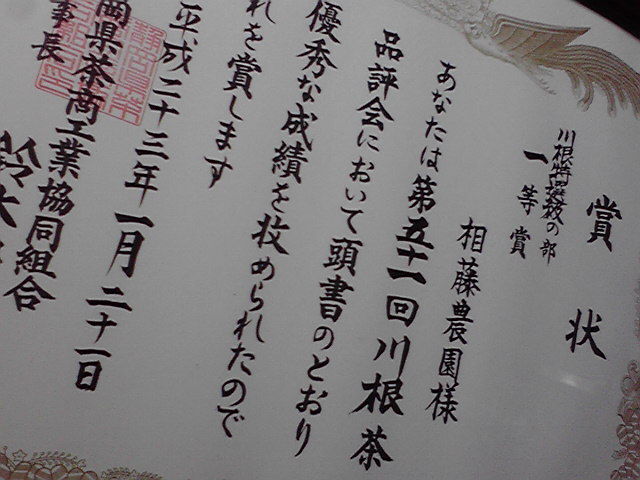 賞状
川根特選板の部
一等賞
相藤農園様
あなたは第五十一回川根茶
品評会において頭書のとおり
優秀な成績を收められたので
れを賞します
平成二十三年一月二十一日
岡県茶商工業協同組合
事長 鈴木